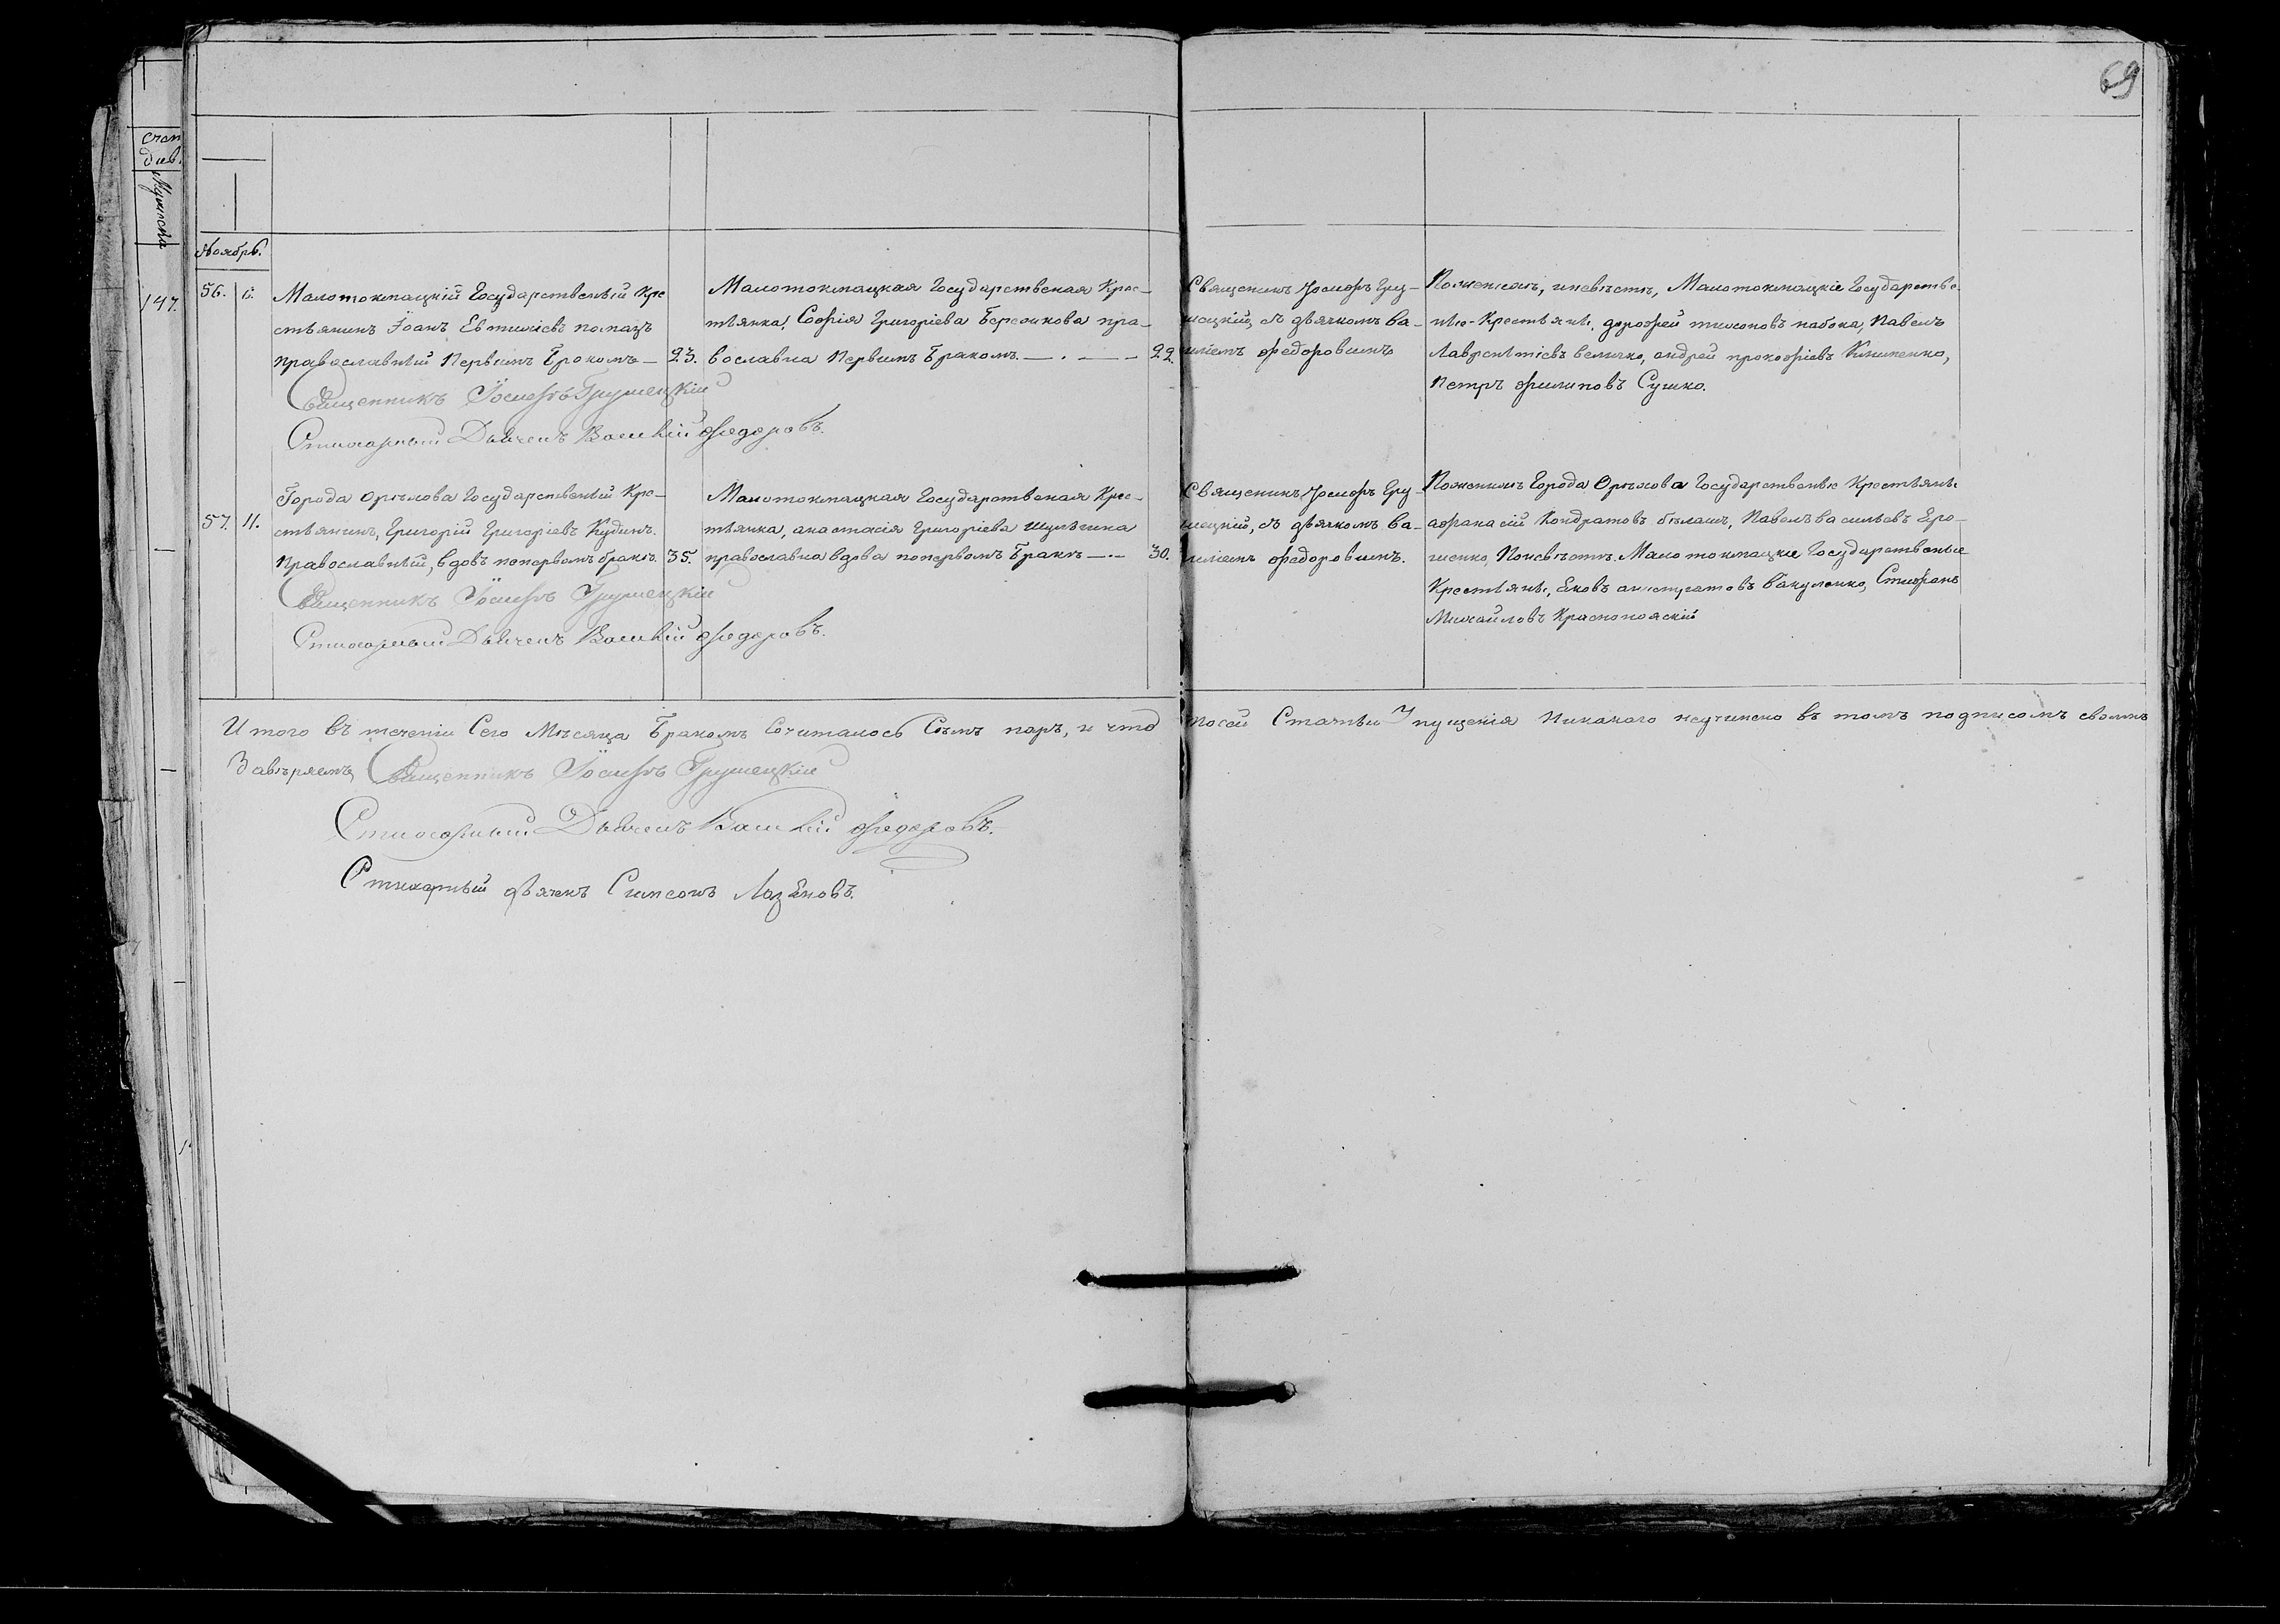 69
счет
див.
Мужеска
147.
Ноябрь.
56. 6.
Малотокмацкій Государственый Кре
стьянинъ Іоанъ Евтихіевъ помазъ
православный первымъ бракомъ — 23.
Малотокмацкая Государственая Крес-
тьянка, Софія Григоріева Береснкова пра-
вославна первымъ бракомъ. — . — - 22.
Священикъ Іосифъ Гру-
шецкій, съ дьячкомъ Ва-
силіемъ Федоровымъ
Поженихѣ, иневѣстѣ, Малотокмацкіе Государстве-
ные Крестьяне, дорофей тихоновъ набока, Павелъ
Лаврентіевъ величко, андрей прокофіевъ Книженко,
Петръ филиповъ Сушко.
Священникъ Іосифъ Грушецкій
Стихарный Дьяченъ Василій Федоровъ.
57. 11.
Города Орѣхова Государственый Кре-
стьянинъ, Григорій Григоріевъ Кудинъ.
Православный, вдовъ попервомъ бракѣ. 35.
Малотокмацкая Государственая Крес-
тьянка, анастасія Григоріева шулѣгина
православна вдова попервомъ бракѣ —.— 30.
Священикъ Іосифъ Гру-
шецкій, съ дьячкомъ Ва-
силіемъ Федоровымъ.
Поженихѣ Города Орѣхова Государственые Крестьяне
афанасій Кондратовъ бѣлашъ, Павелъ васильевъ Еро-
шенко, Поневѣстѣ. Малотокмацкие Государственые
Крестьяне, Яковъ Вакуленко, Стефанъ
Михайловъ Краснопоясkій
Священникъ Іосифъ Грушецкій
Стихарный Дьяченъ Василій Федоровъ.
Итого въ теченіи Сего Мѣсяца Бракомъ Сочиталось Сѣмъ паръ, и что посей Статьи Упущенія Никакого неучинено въ томъ подписомъ своимъ
Завѣряемъ, Священникъ Іосифъ Грушецкій
Стихарный Дьяченъ Василій Федоровъ.
Стихарный дьяченъ Симеонъ Лозяновъ.